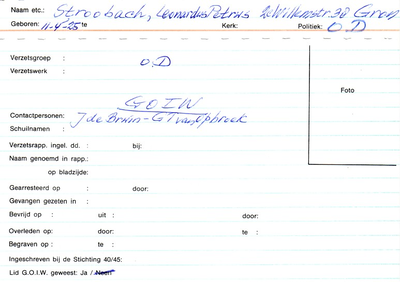 Naam etc.: Stroobach, Leonardus Petrus 2e Willemstr. 30 Gron
Geboren: 11-4-25 te Kerk: Politiek: O D
Verzetsgroep : O.D
Verzetswerk :
G O I W
Foto
Contactpersonen: J de Bruin - G T van Opbroek
Schuilnamen :
Verzetsrapp. ingel. dd. : bij:
Naam genoemd in rapp.:
op bladzijde:
Gearresteerd op : door:
Gevangen gezeten in :
Bevrijd op : uit : door:
Overleden op: door: te :
Begraven op : te :
Ingeschreven bij de Stichting 40/45:
Lid G.O.I.W. geweest: Ja / Neen